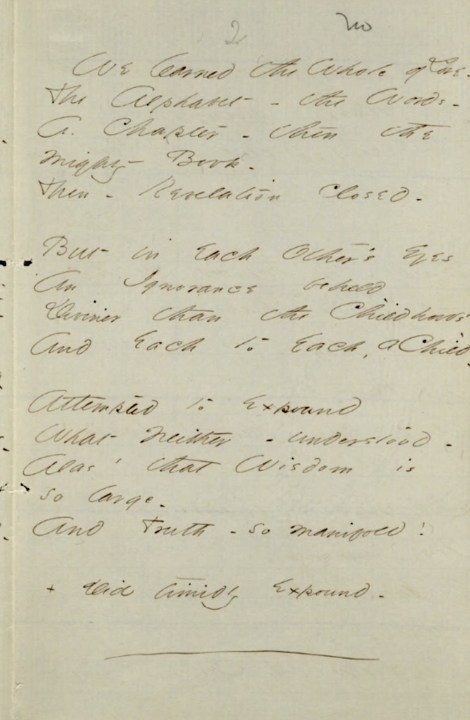 2 no
We learned the Whole of Love -
The Alphabet - the Words -
A Chapter - then the
mighty Book -
Then - Revelation closed -
But in Each Other's Eyes
An Ignorance beheld
Diviner than the Childhood's
And Each to Each, a Child
Attempted to Expound
What neither - understood -
Alas! that Wisdom is
so large -
And Truth - so manifold!
+ Did timidly Expound -